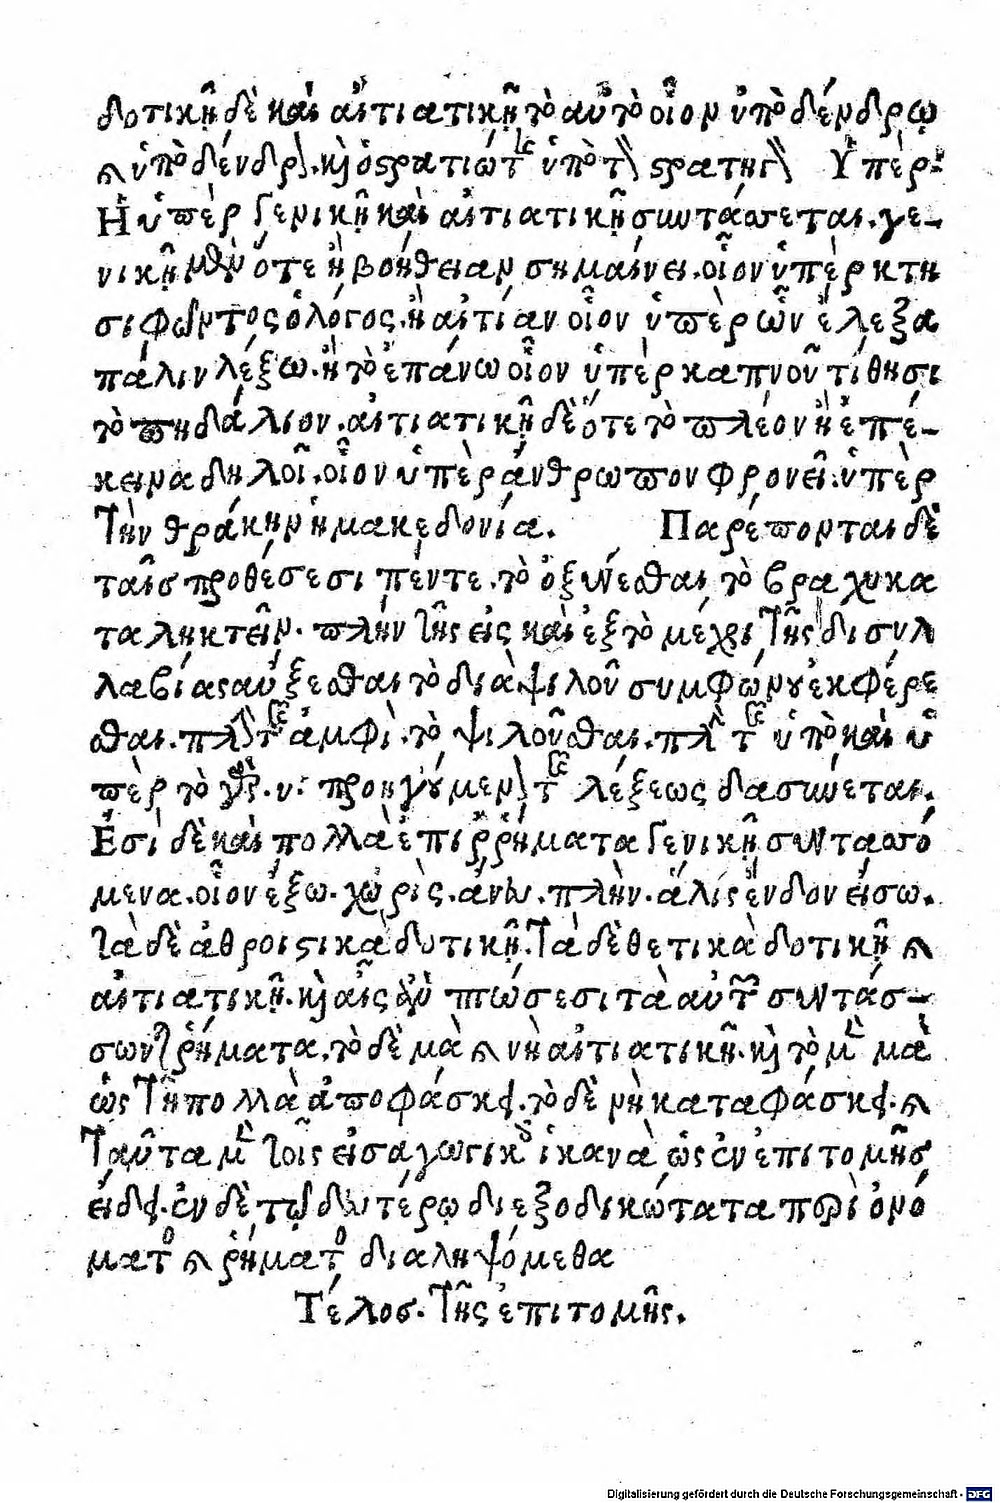 δοτικῇ δὲ καὶ αἰτιατικῇ τὸ αὐτὸ οἷον ὑπὸ δένδρῳ
καὶ ὑπὸ δένδρον. καὶ ὁ στρατιώτης ὑπὸ τὸν στρατηγὸν Ὑπὲρ:
Ἡ ὑπὲρ γενικῇ καὶ αἰτιατικῇ συντάσσεται. γε-
νικῇ μὲν ὅτε ἢ βοήθειαν σημαίνει. οἷον ὑπὲρ κτη
σιφῶντος ὁ λόγος. ἢ αἰτίαν οἷον ὑπὲρ ὧν ἔλεξα
πάλιν λέξω. ἢ τὸ ἐπάνω οἷον ὑπὲρ καπνοῦ τίθησι
τὸ πηδάλιον. αἰτιατικῇ δὲ ὅτε τὸ πλέον ἢ ἐπέ-
κεινα δηλοῖ. οἷον ὑπὲρ ἄνθρωπον φρονεῖ. ὑπὲρ
τὴν θράκην ἡ μακεδονία. Παρέπονται δὲ
ταῖς προθέσεσι πέντε. τὸ ὀξύνεσθαι τὸ βραχυκα
ταληκτεῖν. πλὴν τῆς εἰς καὶ ἐξ τὸ μέχρι τῆς δισυλ
λαβίας αὔξεσθαι τὸ διὰ ψιλοῦ συμφώνου ἐκφέρε
σθαι. πλὴν τῆς ἀμφὶ. τὸ ψιλοῦσθαι. πλὴν τῆς ὑπὸ καὶ ὑ
πὲρ τὸ γὰρ. υ: προηγούμενον τῆς λέξεως δασύνεται.
Ἔστι δὲ καὶ πολλὰ ἐπιῤῥήματα γενικῇ συντασσό
μενα. οἷον ἔξω. χωρὶς. ἄνευ. πλὴν. ἅλις ἔνδον εἴσω.
τὰ δὲ ἀθροιστικὰ δοτικῇ. Τὰ δὲ θετικὰ δοτικῇ καὶ
αἰτιατικῇ. καὶ αἷς ἂν πτώσεσι τὰ αὐτῶν συντάσ-
σωνται ῥήματα. τὸ δὲ μὰ καὶ νὴ αἰτιατικῇ. καὶ τὸ μὲν μὰ
ὡς ἐπὶ πολλὰ ἀποφάσκει. τὸ δὲ νὴ καταφάσκει. καὶ
Ταῦτα μὲν τοῖς εἰσαγωγικοῖς ἱκανὰ ὡς ἐν ἐπιτομῆς
εἴδει. ἐν δὲ τῷ δευτέρῳ διεξοδικώτατα περὶ ὀνό
ματος καὶ ῥήματος διαληψόμεθα
Τέλος. τῆς ἐπιτομῆς.
Digitalisierung gefördert durch die Deutsche Forschungsgemeinschaft - DFG